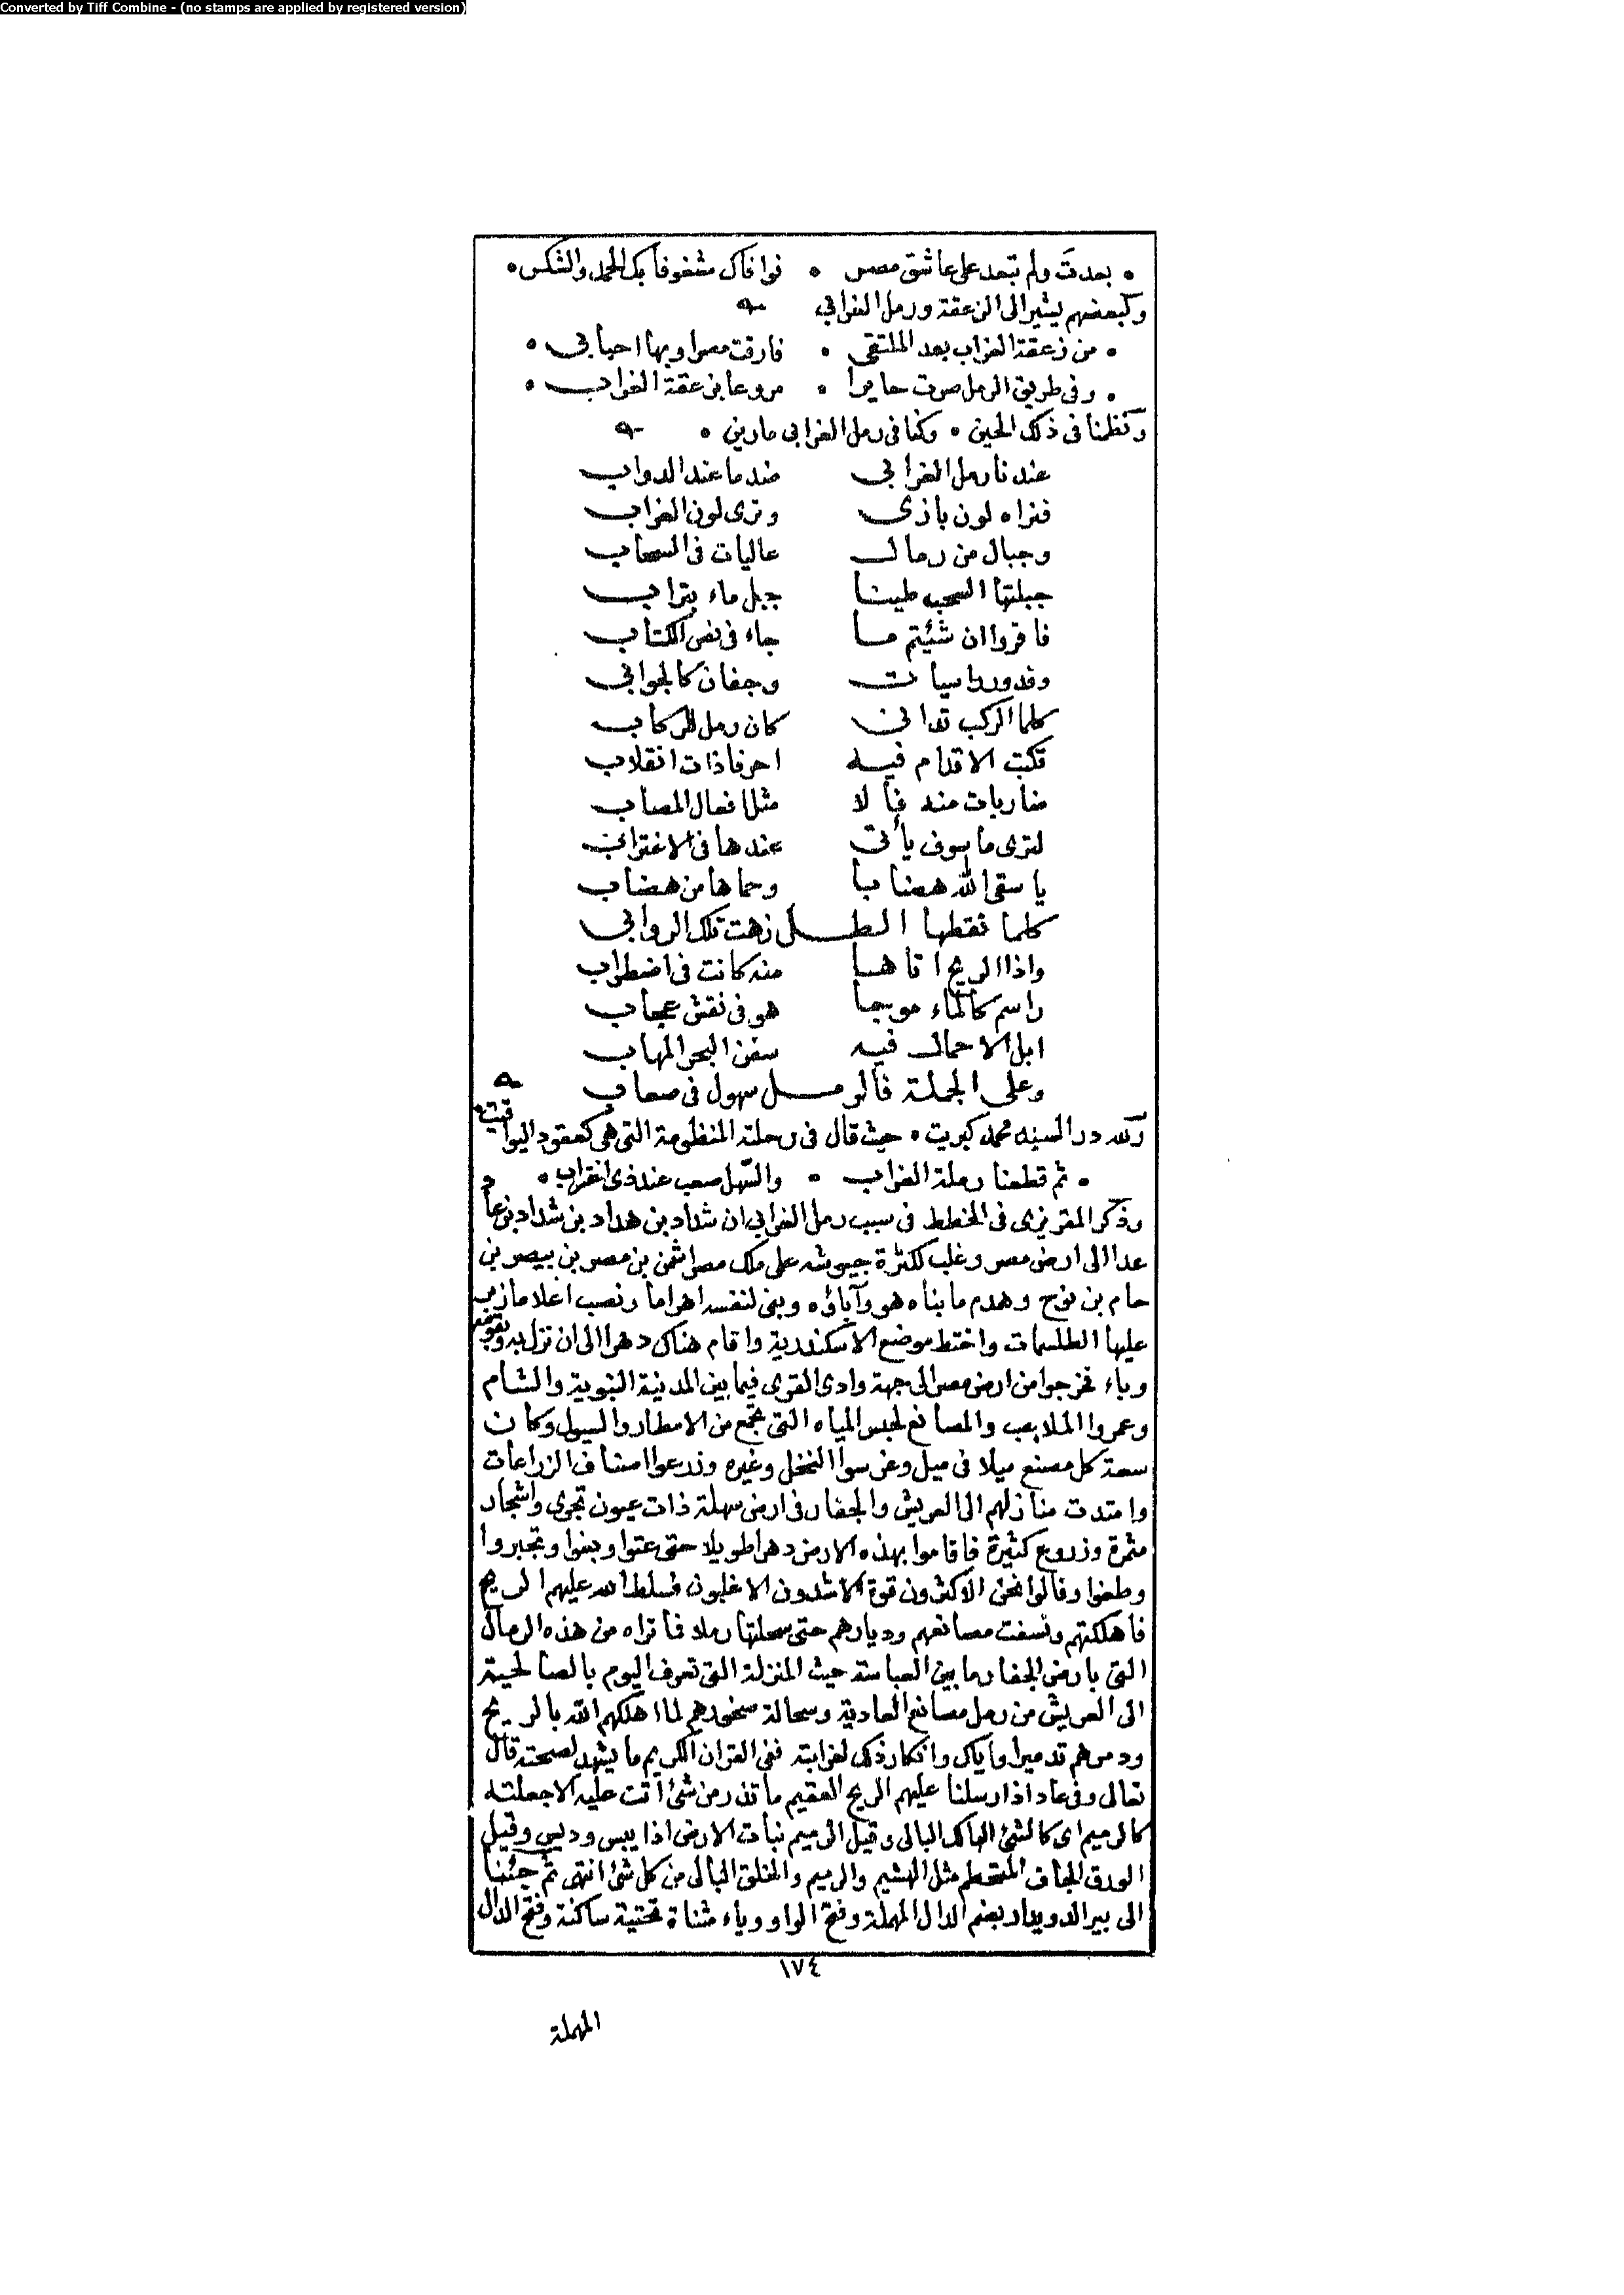 Converted by Tiff Combine - (no stamps are applied by registered version)
• بعدت ولم تبعد على عاشق مصر • فوافاك مشغوفا بك الحمد والشكر •
ولبعضهم يشير الى الزعقة ورمل الغرابي
• من زعقة الغراب بعد الملتقى • فارقت مصرا وبها احبابي •
• وفى طريق الرمل صرت حايرا • مروعا بزعقة الغراب •
ونظمنا فى ذلك الحين • وكنا فى رمل الغرابى مارين •
عندنا رمل الغرابي ضد ما عند الدواب
فنراه لون بازى وترى لون الغراب
وجبال من رمال عاليات فى السحاب
جبلتها السحب طينا جبل ماء بتراب
فاقروا ان شئتم ما جاء فى نص الكتاب
وقدور راسيات وجفان كالجوابي
كلما الركب تدانى كان رمل للركاب
تكتب الاقدام فيه احرفا ذات انقلاب
ضاربات منه فالا مثل افعال المصاب
لترى ما سوف يأتى عندها فى الاغتراب
يا سقى الله هضابا وحماها من هضاب
كلما نقطها الطل زهت تلك الروابي
واذا الريح اتاها منه كانت فى اضطراب
راسم كالماء موجا هو فى نقش عجاب
ابل الاحمال فيه سفن البحر المهاب
وعلى الجملة فالرمل سهول فى صعاب
ولله در السيد محمد كبريت • حيث قال فى رحلته المنظومة التى هى كعقود اليواقيت
• ثم قطعنا رملة الغراب • والسهل صعب عند ذى اغتراب •
وذكر المقريزى فى الخطط فى سبب رمل الغرابي ان شداد بن هداد بن شداد بن عاد
عدا الى ارض مصر وغلب لكثرة جيوشه على ملك مصر اشمن بن مصر بن بيصر بن
حام بن نوح وهدم ما بناه هو وآباؤه وبنى لنفسه اهراما ونصب اعلاما زبر
عليها الطلسمات واختط موضع الاسكندرية واقام هناك دهرا الى ان نزل به وبقومه
وباء فخرجوا من ارض مصر الى جهة وادى القرى فيما بين المدينة النبوية والشام
وعمروا الملاعب والمصانع لحبس المياه التى تجمع من الامطار والسيول وكان
سعة كل مصنع ميلا فى ميل وغرسوا النخل وغيره وزرعوا اصناف الزراعات
وامتدت منازلهم الى العريش والجفار فى ارض سهلة ذات عيون تجرى واشجار
مثمرة وزروع كثيرة فاقاموا بهذه الارض دهرا طويلا حتى عتوا وبغوا وتجبروا
وطغوا وقالوا نحن الاكثرون قوة الاشدون الاغلبون فسلط الله عليهم الريح
فاهلكتهم ونسفت مصانعهم وديارهم حتى سحلتها رملا فما تراه من هذه الرمال
التى بارض الجفار ما بين العباسة حيث المنزلة التى تعرف اليوم بالصالحية
الى العريش من رمل مصانع العادية وسحالة صخورهم لما اهلكهم الله بالريح
ودمرهم تدميرا واياك وانكار ذلك لغرابته ففى القران الكريم ما يشهد لصحته قال
تعالى وفى عاد اذ ارسلنا عليهم الريح العقيم ما تذر من شئ أتت عليه الا جعلته
كالرميم اى كالشئ الهالك البالى وقيل الرميم نبات الارض اذا يبس وديس وقيل
الورق الجاف المتحطم مثل الهشيم والرميم والخلق البالى من كل شئ انتهى ثم جئنا
الى بير الدويدار بضم الدال المهملة وفتح الواو وياء مثناة تحتية ساكنة وفتح الدال
١٧٤
المهملة